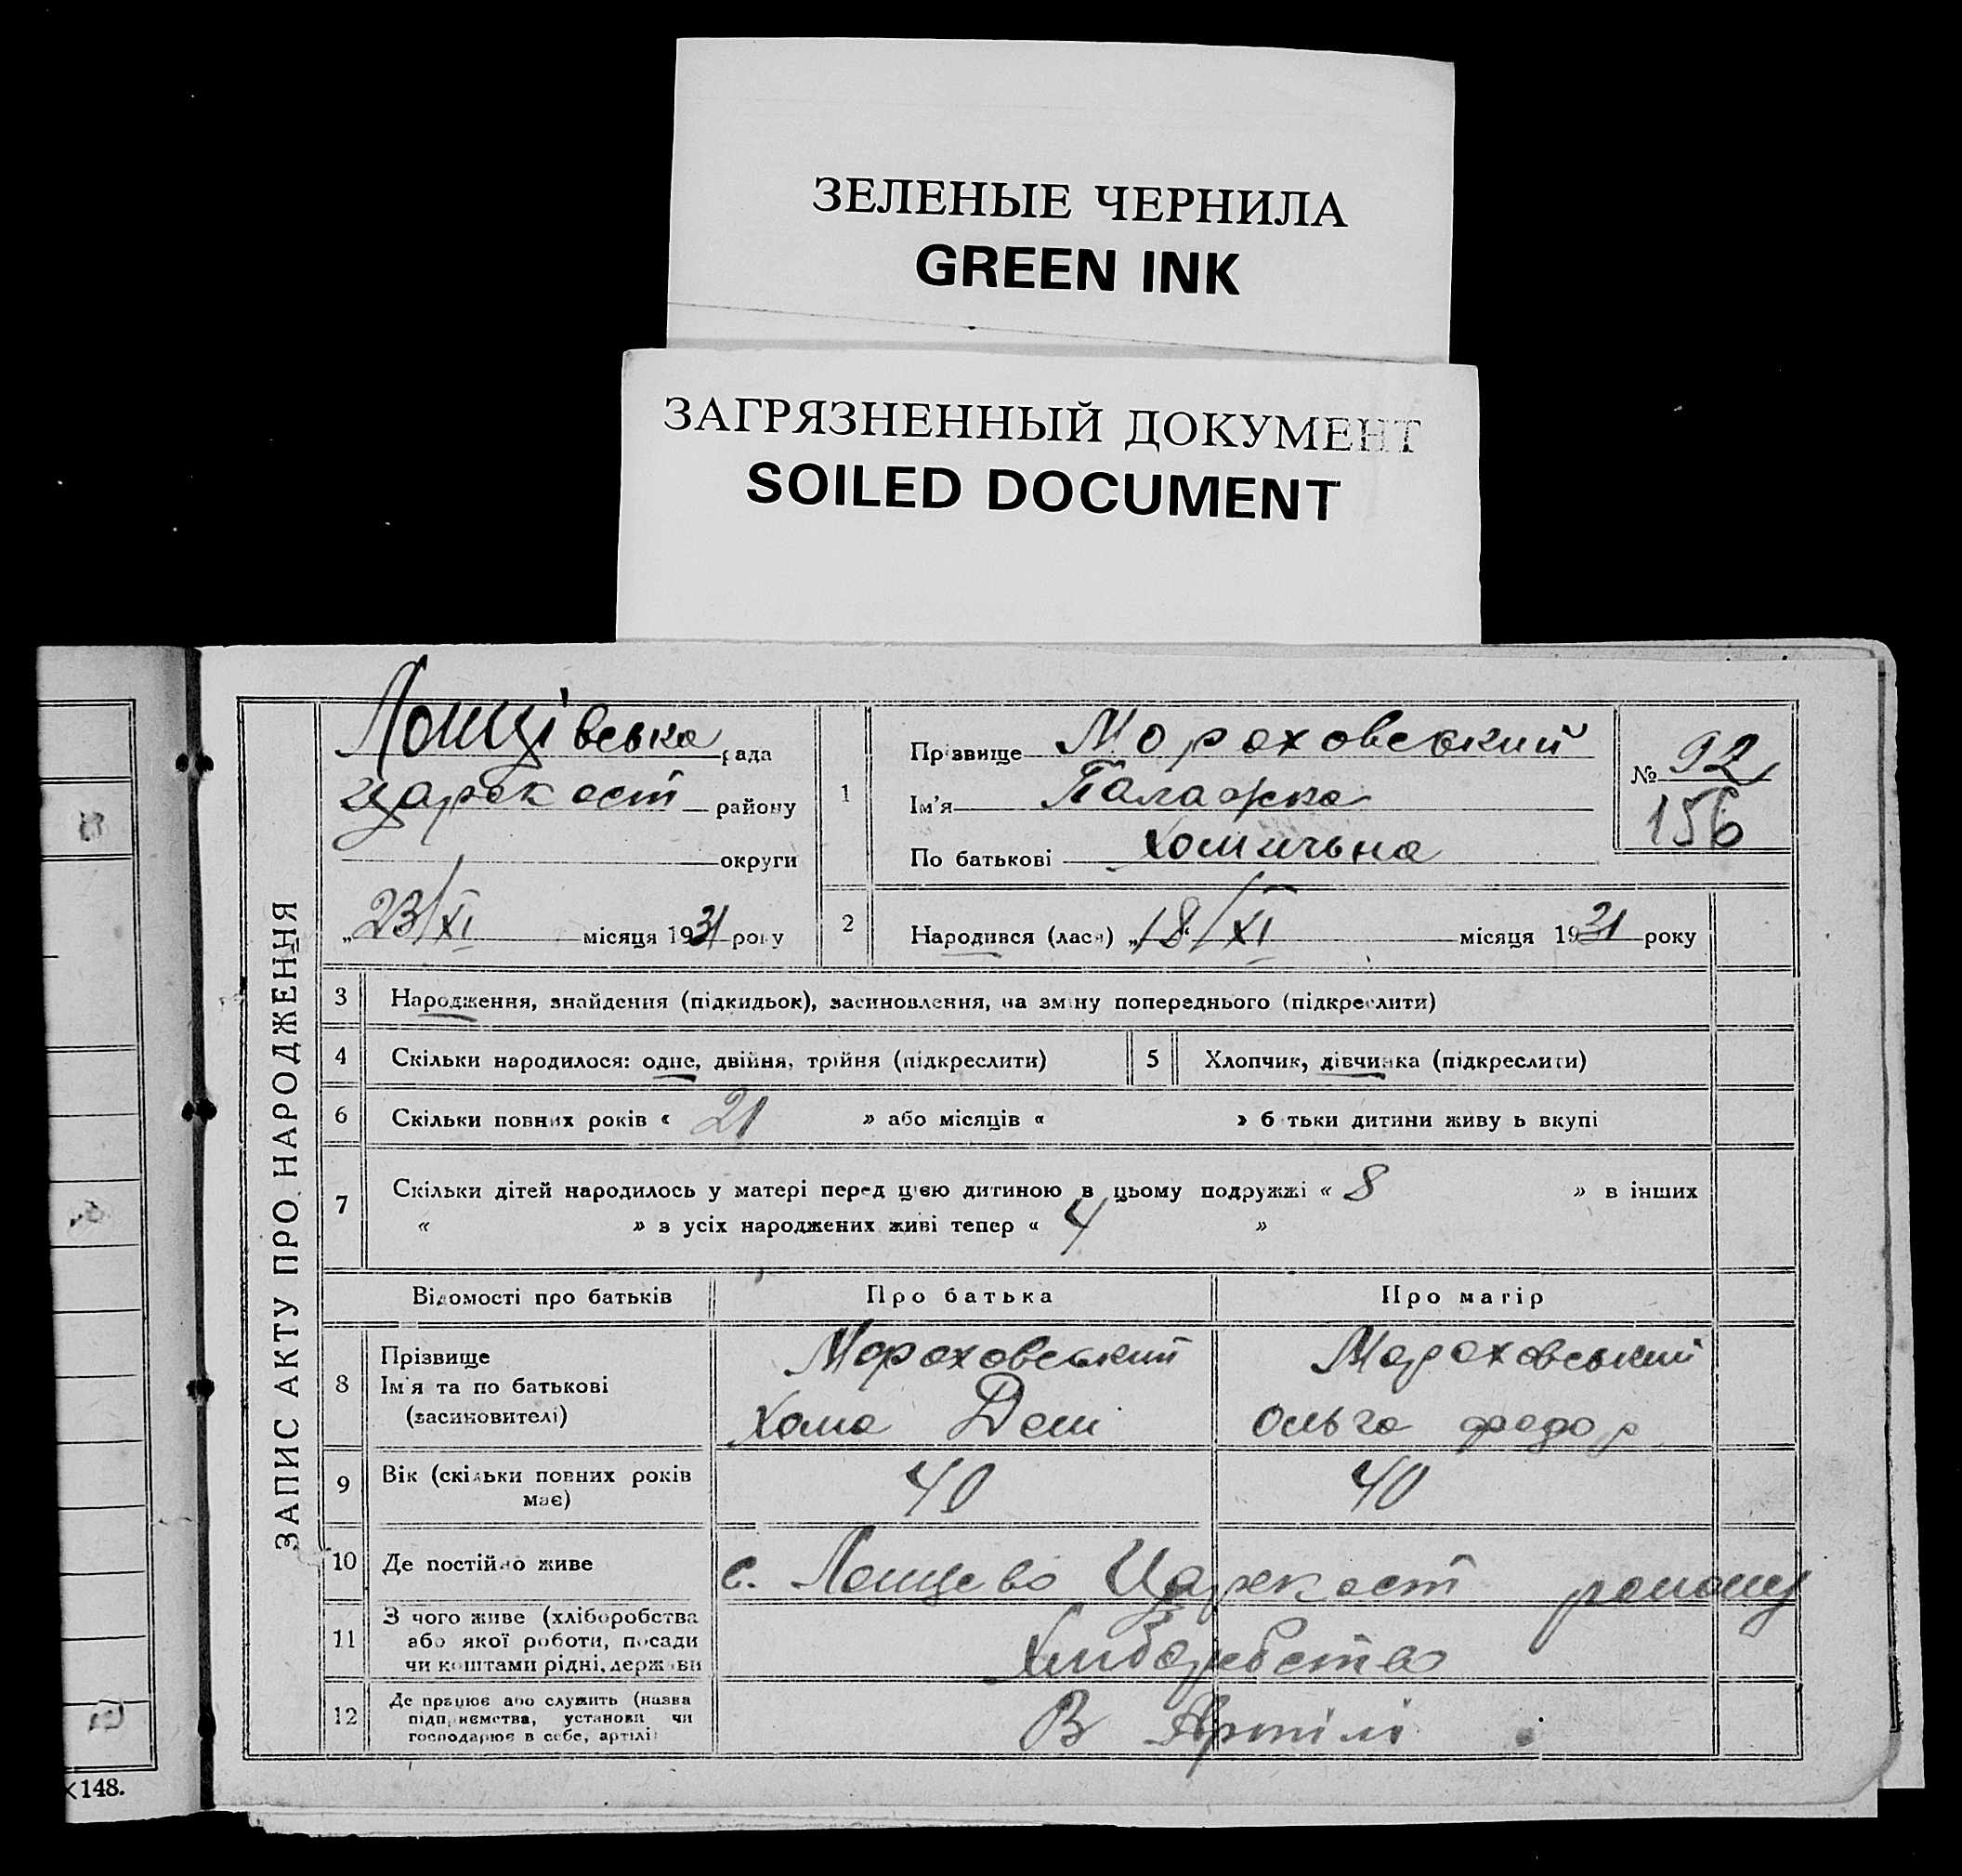 ЗЕЛЕНЫЕ ЧЕРНИЛА
GREEN INK
ЗАГРЯЗНЕННЫЙ ДОКУМЕНТ
SOILED DOCUMENT
ЗАПИС АКТУ ПРО НАРОДЖЕННЯ
Лощівська рада
царекост району
округи
„23/XI місяця 1931 року
1
Прізвище Мороховський
Ім'я Палажка
По батькові Хомична
№ 92
156
2 Народився (лася) „18/XI місяця 1931 року
3 Народження, знайдення (підкидьок), засиновлення, на зміну попереднього (підкреслити)
4 Скільки народилося: одне, двійня, трійня (підкреслити) 5 Хлопчик, дівчинка (підкреслити)
6 Скільки повних років « 21 » або місяців « » б тьки дитини живу ь вкупі
7 Скільки дітей народилось у матері перед цією дитиною в цьому подружжі « 8 » в інших
« » з усіх народжених живі тепер « 4 »
Відомості про батьків Про батька Про матір
8 Прізвище Мороховський Мороховський
Ім'я та по батькові
(засиновителі) Хома Дем Ольга федор
9 Вік (скільки повних років
має) 40 40
10 Де постійно живе с. Лощево Царекост району
11 З чого живе (хліборобства
або якої роботи, посади
чи коштами рідні, держави Хліборобство
12 Де працює або служить (назва
підприємства, установи чи
господарює в себе, артілі) В Артілі
148.